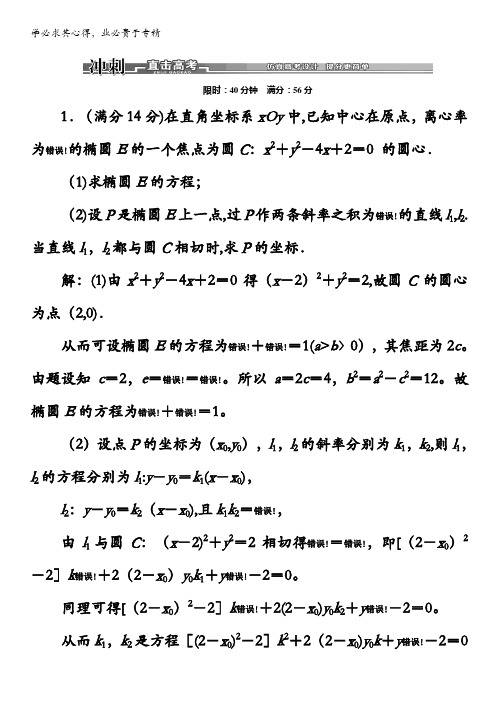 学必求其心得，业必贵于专精
冲刺 直击高考 仿真高考设计 提分更简单
ZHIJI GAOKAO
限时：40分钟 满分：56分
1．（满分14分)在直角坐标系xOy中,已知中心在原点，离心率
为错误!的椭圆E的一个焦点为圆C：x²＋y²－4x＋2＝0 的圆心．
（1)求椭圆E的方程；
(2)设P是椭圆E上一点,过P作两条斜率之积为错误!的直线l₁,l₂.
当直线l₁，l₂都与圆C相切时,求P的坐标．
解：(1)由x²＋y²－4x＋2＝0 得（x－2）²＋y²＝2,故圆C的圆心
为点（2,0)．
从而可设椭圆E的方程为错误!＋错误!＝1(a>b〉0），其焦距为2c。
由题设知 c＝2，e＝错误!＝错误!。所以 a＝2c＝4，b²＝a²－c²＝12。故
椭圆E的方程为错误!＋错误!＝1。
（2）设点P的坐标为（x₀,y₀），l₁，l₂的斜率分别为k₁，k₂,则l₁，
l₂的方程分别为l₁:y－y₀＝k₁(x－x₀)，
l₂：y－y₀＝k₂（x－x₀),且k₁k₂＝错误!，
由 l₁与圆C：（x－2)²＋y²＝2 相切得错误!＝错误!，即[（2－x₀）²
－2］k错误!＋2（2－x₀）y₀k₁＋y错误!－2＝0。
同理可得[（2－x₀）²－2］k错误!＋2(2－x₀)y₀k₂＋y错误!－2＝0。
从而k₁，k₂是方程［(2－x₀)²－2］k²＋2（2－x₀)y₀k＋y错误!－2＝0